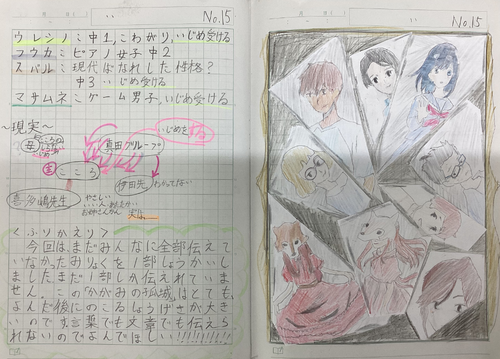 No.15
ウレシノ:中1,こわがり,いじめ受ける
フウカ:ピアノ女子中2
スバル:現代ばなれした性格?
中3 いじめ受ける
マサムネ:ゲーム男子,いじめ受ける
~現実~
いじめを
母
真田グループ
主 こころ
伊田先
わかってない
喜多嶋先生
やさしい
実は
<ふりかえり>
今回は、まだみんなに全部伝えて
いなかったみりょくを1部しょうかいし
ましたまだ1部しか伝えれていま
せん。この「かがみの孤城」はとても
よんだ後にのこるしょうげきが大き
いので、言葉でも文章でも伝えら
れないのでよんでほしい!!!!!!!!!
No.15